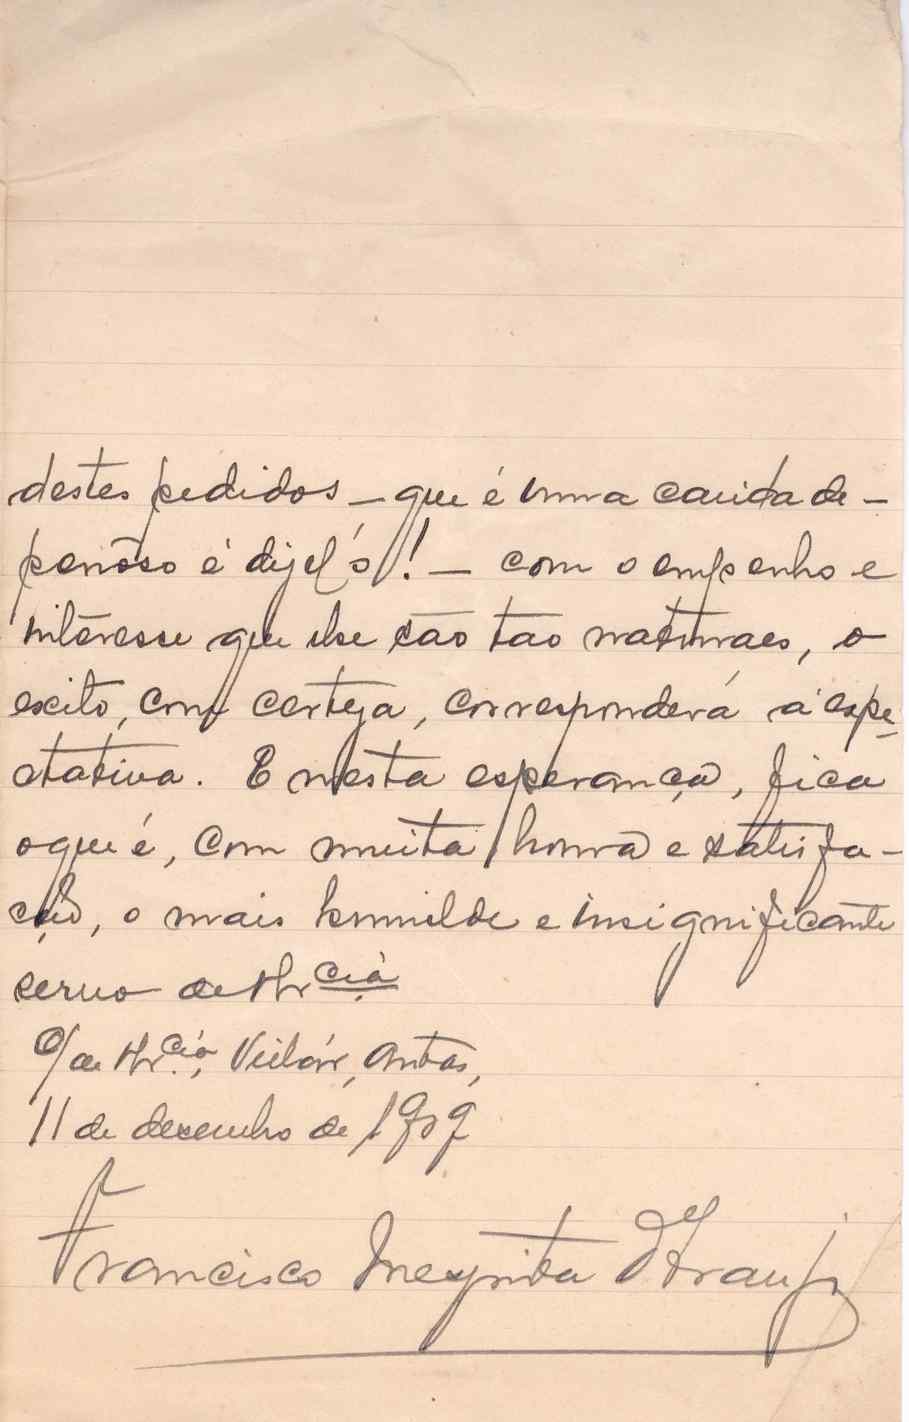 destes pedidos — que é uma caridade —
penôso é dizel'o! — com o empenho e
intêresse que lhe são tão naturaes, o
exito, com certeza, corresponderá á espe-
ctativa. E nesta esperança, fica
o que é, com muita honra e satisfa-
ção, o mais humilde e insignificante
servo de V. Ex.cia
de Antas,
11 de dezembro de
Francisco Mesquita d'Araujo